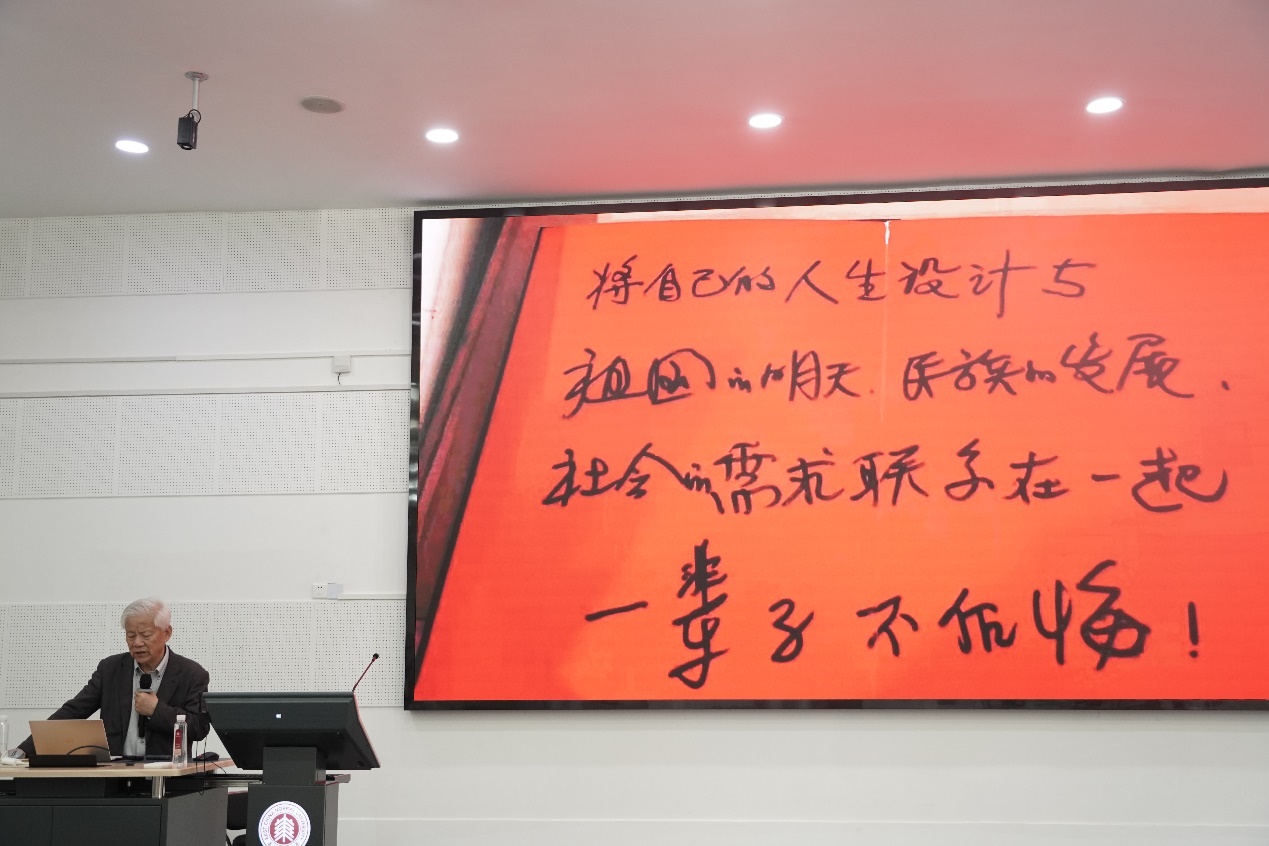 将自己的人生设计与
祖国的明天、民族的发展、
社会的需求联系在一起
一辈子不后悔！